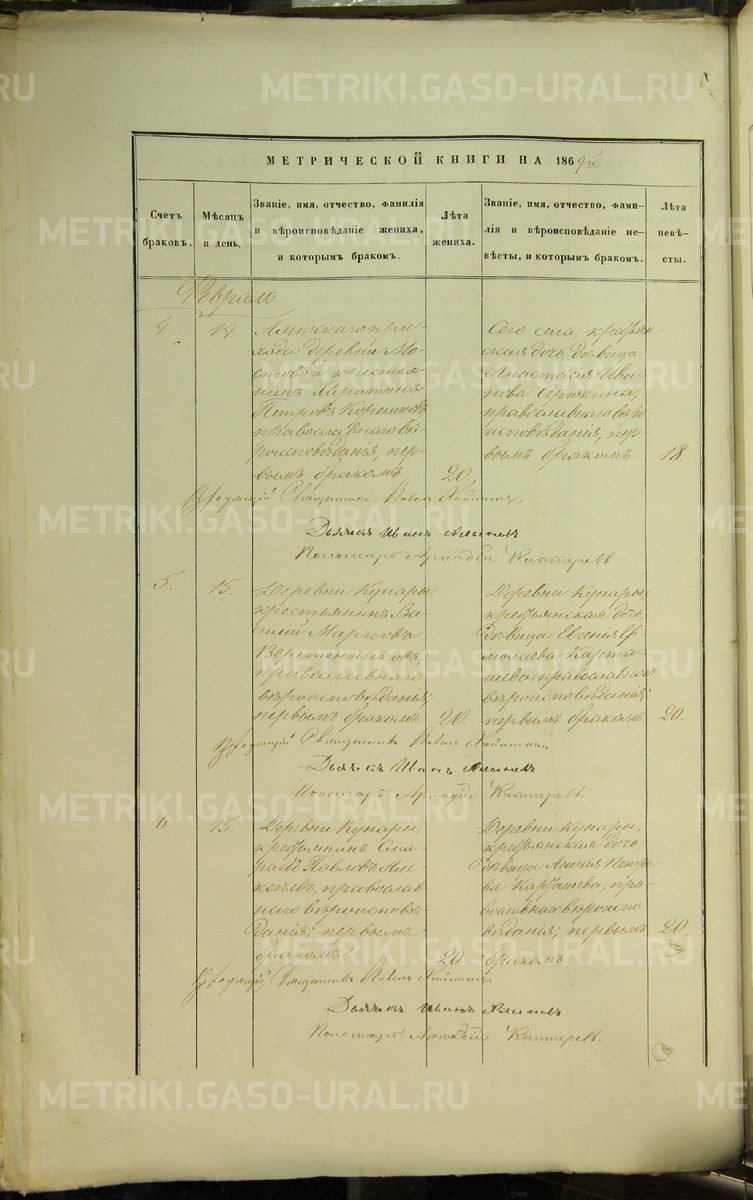 МЕТРИЧЕСКОЙ КНИГИ НА 1869й
Счетъ браковъ.
Мѣсяцъ и день.
Званіе, имя, отчество, фамилія
и вѣроисповѣданіе жениха,
и которымъ бракомъ.
Лѣта жениха.
Званіе, имя, отчество, фами-
лія и вѣроисповѣданіе не-
вѣсты, и которымъ бракомъ.
Лѣта невѣ-
сты.
Февраль
4
14
прі-
хода, деревни Мо-
стовой, крестья-
нинъ Харитонъ
Петровъ
православнаго вѣ-
роисповѣданія; пер-
вымъ бракомъ
20
Сего села, крестьян-
ская дочь, дѣвица
Анастасія Ива-
нова
православнаго вѣро
исповѣданія; пер-
вымъ бракомъ.
18.
Священникъ Павелъ
Дьячекъ Иванъ
Пономарь Аркадій Каттеревъ.
5.
15.
Деревни Кунары,
крестьянинъ Ва-
силій Марковъ
православнаго
вѣроисповѣданія;
первымъ бракомъ
20.
Деревни Кунары
крестьянская дочь,
дѣвица Евгенія Ер-
молаева Карта-
шева, православнаго
вѣроисповѣданія;
первымъ бракомъ.
20.
Священникъ Павелъ
Дьячекъ Иванъ
Пономарь Аркадій Каттеревъ
6
15.
Деревни Кунары,
крестьянинъ Сма-
рагдъ Павловъ Али-
православ
наго вѣроисповѣ-
данія; первымъ
бракомъ.
20
Деревни Кунары,
крестьянская дочь,
дѣвица Петро-
ва Карташева, пра-
вославнаго вѣроиспо
вѣданія; первымъ
бракомъ
20.
Священникъ Павелъ
Дьячекъ Иванъ
Пономарь Аркадій Каттеревъ.
METRIKI.GASO-URAL.RU